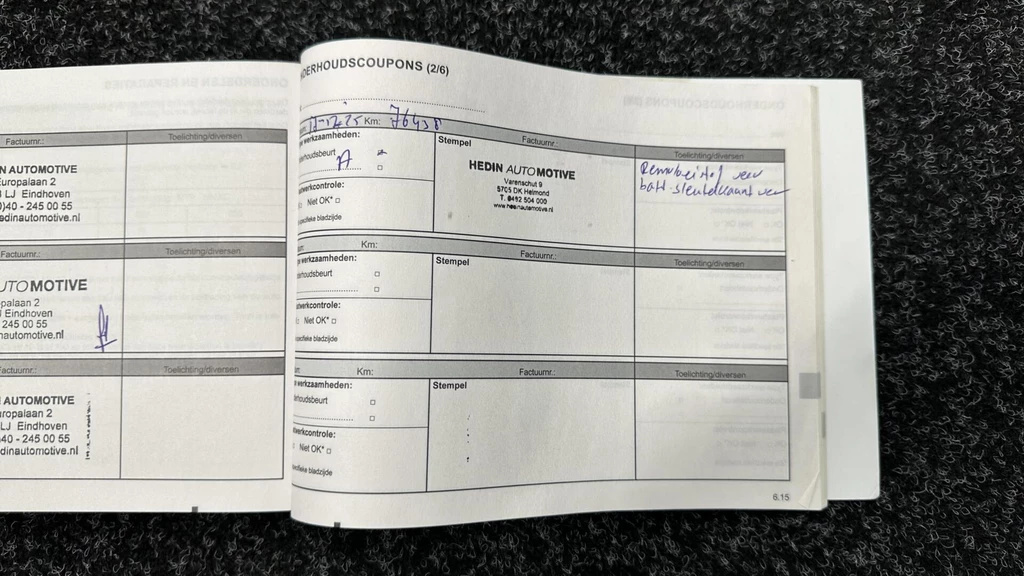 Factuurnr.:
Toelichting/diversen
N AUTOMOTIVE
uropalaan 2
LJ Eindhoven
)40 - 245 00 55
edinautomotive.nl
Factuurnr.:
Toelichting/diversen
UTOMOTIVE
palaan 2
Eindhoven
245 00 55
nautomotive.nl
Factuurnr.:
Toelichting/diversen
AUTOMOTIVE
uropalaan 2
LJ Eindhoven
40 - 245 00 55
dinautomotive.nl
DERHOUDSCOUPONS (2/6)
Km: 76438
Factuurnr.:
Toelichting/diversen
werkzaamheden:
erhoudsbeurt A
twerkcontrole:
Niet OK*
specifieke bladzijde
Stempel
HEDIN AUTOMOTIVE
Varenschut 9
5705 DK Helmond
T. 0492 504 000
www.hedinautomotive.nl
Remvloeistof ver
batt. sleutelkaart ver
Km:
Factuurnr.:
Toelichting/diversen
werkzaamheden:
erhoudsbeurt
twerkcontrole:
Niet OK*
specifieke bladzijde
Stempel
Km:
Factuurnr.:
Toelichting/diversen
werkzaamheden:
erhoudsbeurt
twerkcontrole:
Niet OK*
specifieke bladzijde
Stempel
6.15